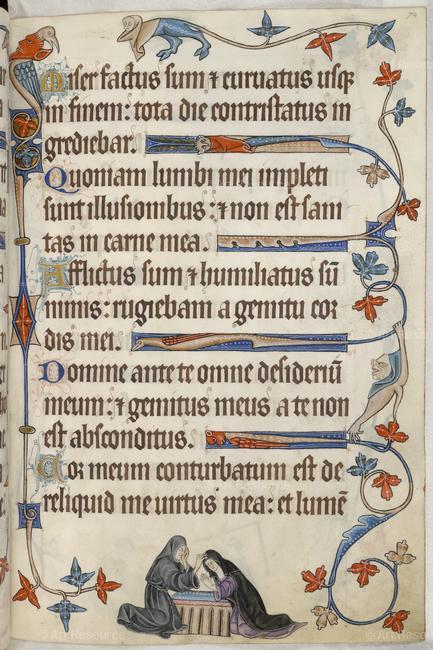 74
Miser factus sum ⁊ curuatus usqꝫ
in finem: tota die contristatus in
grediebar.
Quoniam lumbi mei impleti
sunt illusionibus: ⁊ non est sani
tas in carne mea.
Afflictus sum ⁊ humiliatus sū
nimis: rugiebam a gemitu cor
dis mei.
Domine ante te omne desideriū
meum: ⁊ gemitus meus a te non
est absconditus.
Cor meum conturbatum est de
reliquid me uirtus mea: et lumē
© Art Resource